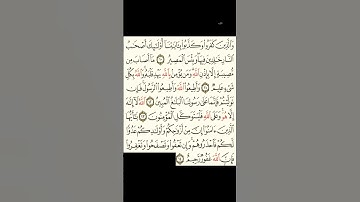 وَالَّذِينَ كَفَرُوا وَكَذَّبُوا بِآيَاتِنَا أُولَٰئِكَ أَصْحَابُ
النَّارِ خَالِدِينَ فِيهَا وَبِئْسَ الْمَصِيرُ ۝١٠ مَا أَصَابَ مِن
مُّصِيبَةٍ إِلَّا بِإِذْنِ اللَّهِ وَمَن يُؤْمِن بِاللَّهِ يَهْدِ قَلْبَهُ وَاللَّهُ بِكُلِّ
شَيْءٍ عَلِيمٌ ۝١١ وَأَطِيعُوا اللَّهَ وَأَطِيعُوا الرَّسُولَ فَإِن
تَوَلَّيْتُمْ فَإِنَّمَا عَلَىٰ رَسُولِنَا الْبَلَاغُ الْمُبِينُ ۝١٢ اللَّهُ لَا إِلَٰهَ
إِلَّا هُوَ وَعَلَى اللَّهِ فَلْيَتَوَكَّلِ الْمُؤْمِنُونَ ۝١٣ يَا أَيُّهَا
الَّذِينَ آمَنُوا إِنَّ مِنْ أَزْوَاجِكُمْ وَأَوْلَادِكُمْ عَدُوًّا
لَّكُمْ فَاحْذَرُوهُمْ وَإِن تَعْفُوا وَتَصْفَحُوا وَتَغْفِرُوا
فَإِنَّ اللَّهَ غَفُورٌ رَّحِيمٌ ۝١٤